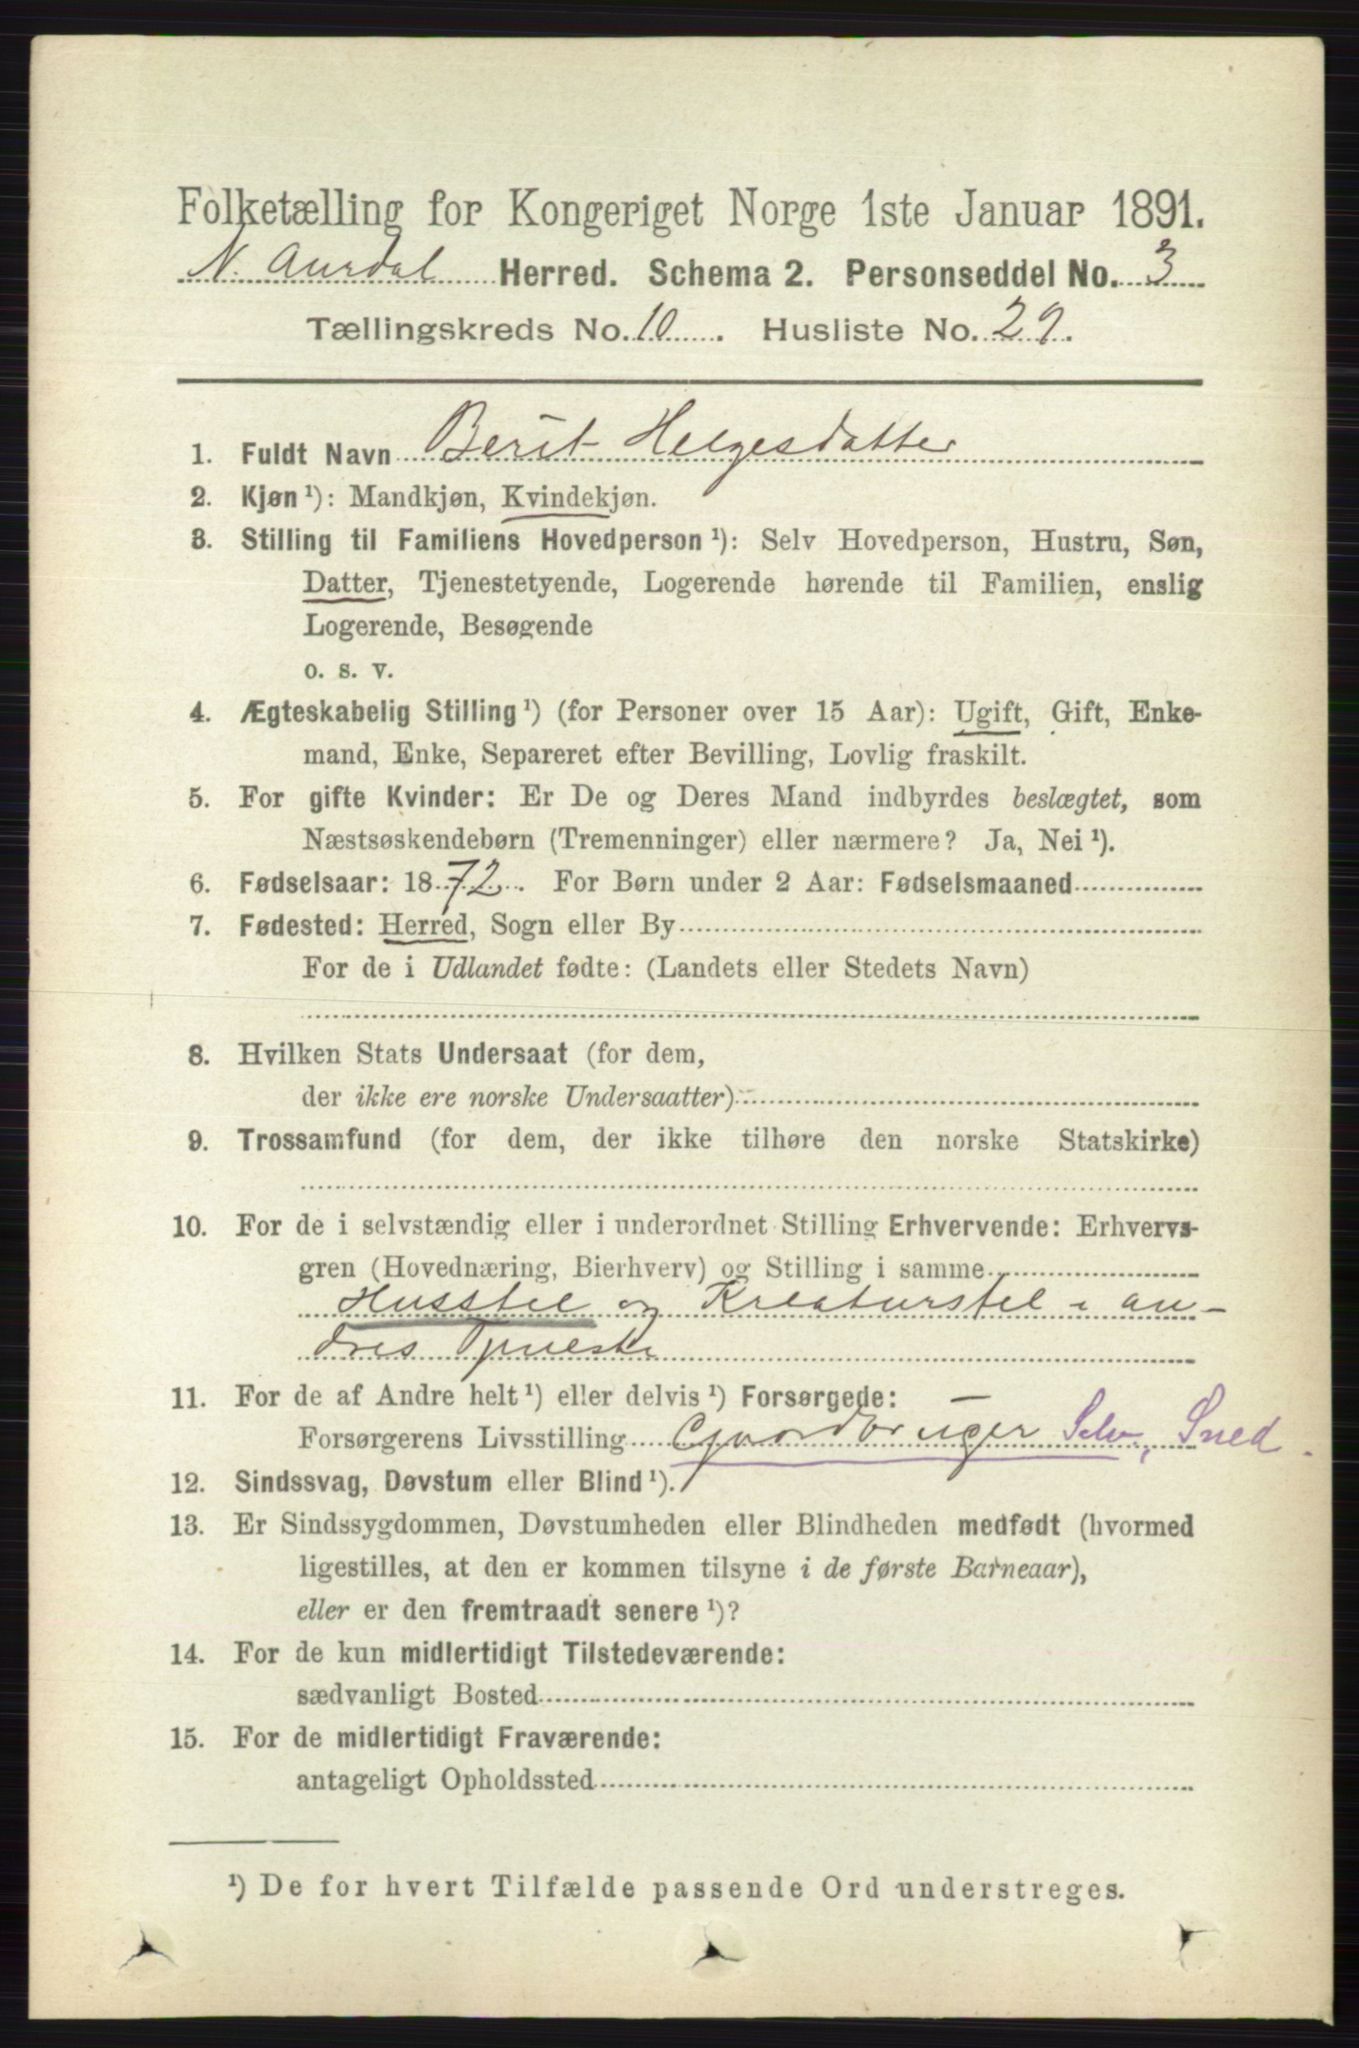 Folketælling for Kongeriget Norge 1ste Januar 1891.
N. Aurdal Herred. Schema 2. Personseddel No. 3
Tællingskreds No. 10. Husliste No. 29.
1. Fuldt Navn Berit Helgesdatter
2. Kjøn ¹): Mandkjøn, Kvindekjøn.
3. Stilling til Familiens Hovedperson ¹): Selv Hovedperson, Hustru, Søn,
Datter, Tjenestetyende, Logerende hørende til Familien, enslig
Logerende, Besøgende
o. s. v.
4. Ægteskabelig Stilling ¹) (for Personer over 15 Aar): Ugift, Gift, Enke-
mand, Enke, Separeret efter Bevilling, Lovlig fraskilt.
5. For gifte Kvinder: Er De og Deres Mand indbyrdes beslægtet, som
Næstsøskendebørn (Tremenninger) eller nærmere? Ja, Nei ¹).
6. Fødselsaar: 1872. For Børn under 2 Aar: Fødselsmaaned
7. Fødested: Herred, Sogn eller By
For de i Udlandet fødte: (Landets eller Stedets Navn)
8. Hvilken Stats Undersaat (for dem,
der ikke ere norske Undersaatter)
9. Trossamfund (for dem, der ikke tilhøre den norske Statskirke)
10. For de i selvstændig eller i underordnet Stilling Erhvervende: Erhvervs-
gren (Hovednæring, Bierhverv) og Stilling i samme
Husstel og Kreaturstel i an-
dres Tjeneste
11. For de af Andre helt ¹) eller delvis ¹) Forsørgede:
Forsørgerens Livsstilling Gaardbruger Selv, Sned.
12. Sindssvag, Døvstum eller Blind ¹).
13. Er Sindssygdommen, Døvstumheden eller Blindheden medfødt (hvormed
ligestilles, at den er kommen tilsyne i de første Barneaar),
eller er den fremtraadt senere ¹)?
14. For de kun midlertidigt Tilstedeværende:
sædvanligt Bosted
15. For de midlertidigt Fraværende:
antageligt Opholdssted
¹) De for hvert Tilfælde passende Ord understreges.